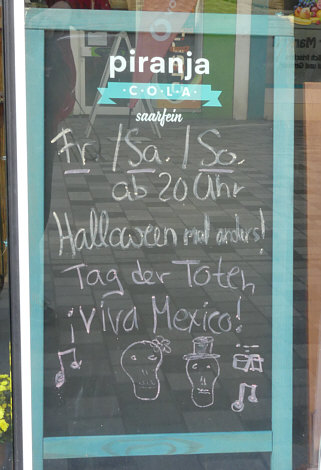 piranja
COLA
saarfein
Fr. / Sa. / So.
ab 20 Uhr
Halloween mal anders!
Tag der Toten
¡Viva Mexico!